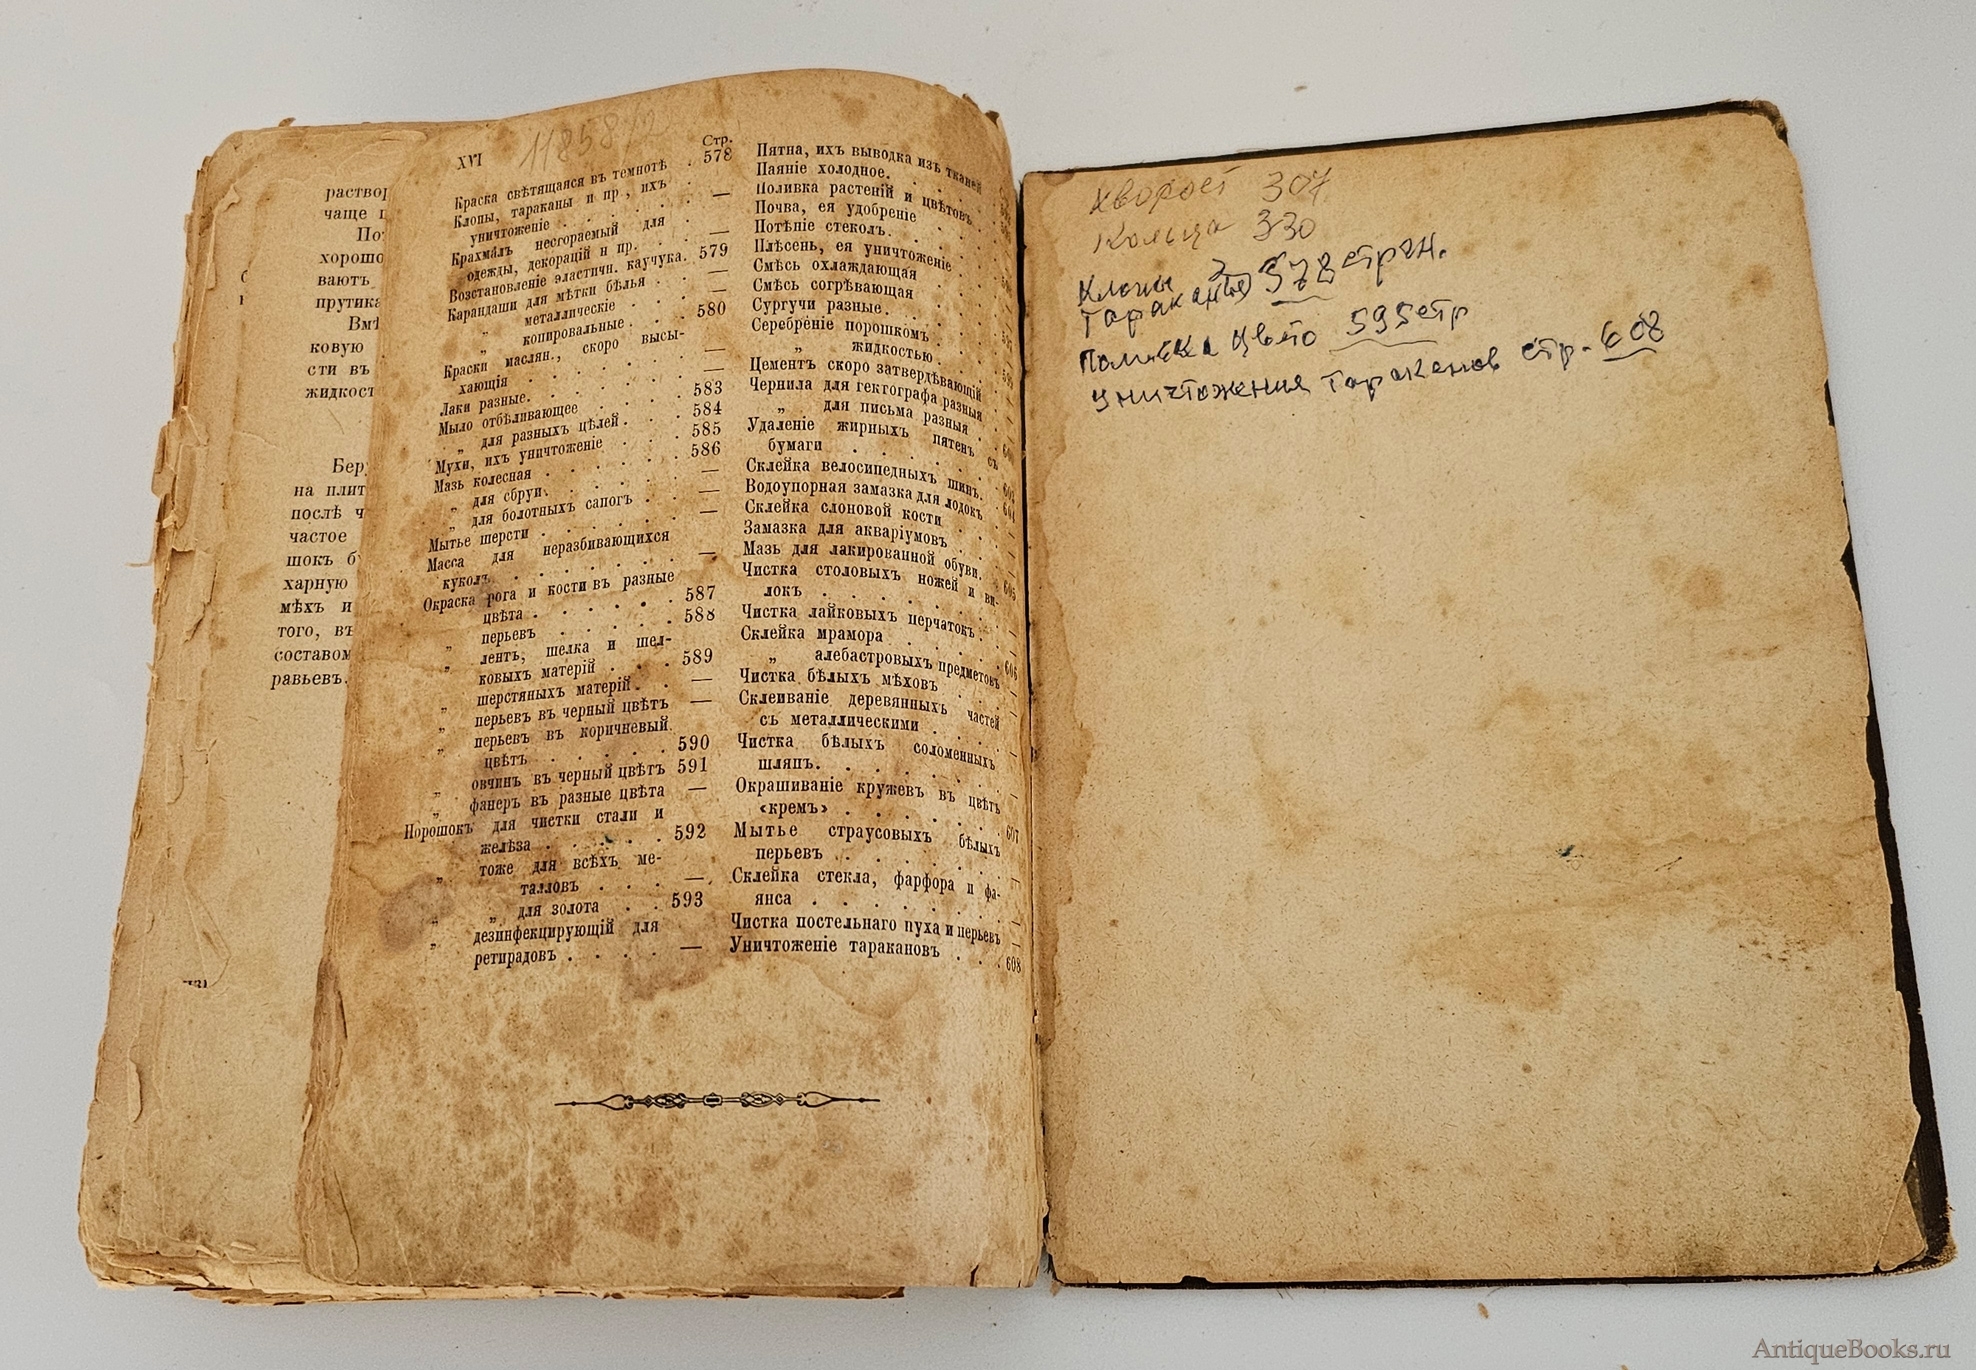 раствор
чаще п
хорошо
вають
прутика
Вмѣ
ковую
сти въ
жидкост
Беру
на плит
послѣ ч
частое
шокъ бу
харную
мѣхъ и
того, въ
составом
равьевъ.
XVI
11858/2
Стр.
Краска свѣтящаяся въ темнотѣ . 578
Клопы, тараканы и пр., ихъ
уничтоженіе . . . . . . —
Крахмалъ несгораемый для
одежды, декорацій и пр. . . —
Возстановленіе эластичн. каучука. 579
Карандаши для мѣтки бѣлья . . —
„ металлическіе . . —
„ копировальные . . . 580
Краски маслян., скоро высы-
хающія . . . . . . . —
Лаки разные. . . . . . . —
Мыло отбѣливающее . . . . 583
„ для разныхъ цѣлей . . . 584
Мухи, ихъ уничтоженіе . . . 585
Мазь колесная . . . . . . 586
„ для сбруи . . . . . . —
„ для болотныхъ сапогъ . . —
Мытье шерсти . . . . . . —
Масса для неразбивающихся
куколъ . . . . . . . —
Окраска рога и кости въ разные
цвѣта . . . . . . 587
„ перьевъ . . . . . 588
„ лентъ, шелка и шел-
ковыхъ матерій . . . 589
„ шерстяныхъ матерій . . —
„ перьевъ въ черный цвѣтъ —
„ перьевъ въ коричневый
цвѣтъ . . . . . 590
„ овчинъ въ черный цвѣтъ 591
„ фанеръ въ разные цвѣта —
Порошокъ для чистки стали и
желѣза . . . . . 592
„ тоже для всѣхъ ме-
талловъ . . . —
„ „ для золота . . 593
„ дезинфекцирующій для
ретирадовъ . . . . —
Пятна, ихъ выводка изъ тканей
Паяніе холодное. . . .
Поливка растеній и цвѣтовъ.
Почва, ея удобреніе . . .
Потѣніе стеколъ. . . . .
Плѣсень, ея уничтоженіе .
Смѣсь охлаждающая . . .
Смѣсь согрѣвающая . . .
Сургучи разные. . . . .
Серебреніе порошкомъ . . .
„ жидкостью . . .
Цементъ скоро затвердѣвающій
Чернила для гектографа разныя
„ для письма разныя . .
Удаленіе жирныхъ пятенъ съ
бумаги . . . . . . .
Склейка велосипедныхъ шинъ.
Водоупорная замазка для лодокъ
Склейка слоновой кости . .
Замазка для акваріумовъ . .
Мазь для лакированной обуви.
Чистка столовыхъ ножей и ви-
локъ . . . . . . . 605
Чистка лайковыхъ перчатокъ .
Склейка мрамора . . . . .
„ алебастровыхъ предметовъ 606
Чистка бѣлыхъ мѣховъ . . .
Склеиваніе деревянныхъ частей
съ металлическими . . . . —
Чистка бѣлыхъ соломенныхъ
шляпъ. . . . . . . . —
Окрашиваніе кружевъ въ цвѣтъ
«кремъ» . . . . . . . 607
Мытье страусовыхъ бѣлыхъ
перьевъ . . . . . . . —
Склейка стекла, фарфора и фа-
янса . . . . . . . . —
Чистка постельнаго пуха и перьевъ —
Уничтоженіе таракановъ . . . 608
Хворост 307
Кольца 330
Клопы
Тараканы 578 стран.
Поливка цвето 595 стр
Уничтожения тараканов стр. 608
AntiqueBooks.ru